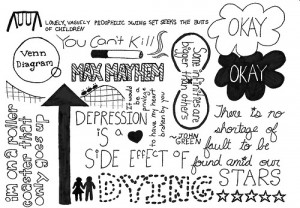 LONELY, VAGUELY PEDOPHILIC SWING SET SEEKS THE BUTTS
OF CHILDREN
Venn
Diagram
You Can't Kill
MAX MAYHEM
Some infinities are
bigger than others
- JOHN
GREEN
OKAY
OKAY
i'm on a roller
coaster that
only goes up
It would
be a
privilege
to have my heart
broken by you
DEPRESSION
IS A
SIDE EFFECT OF
DYING
There is no
shortage of
fault to be
found amid our
STARS